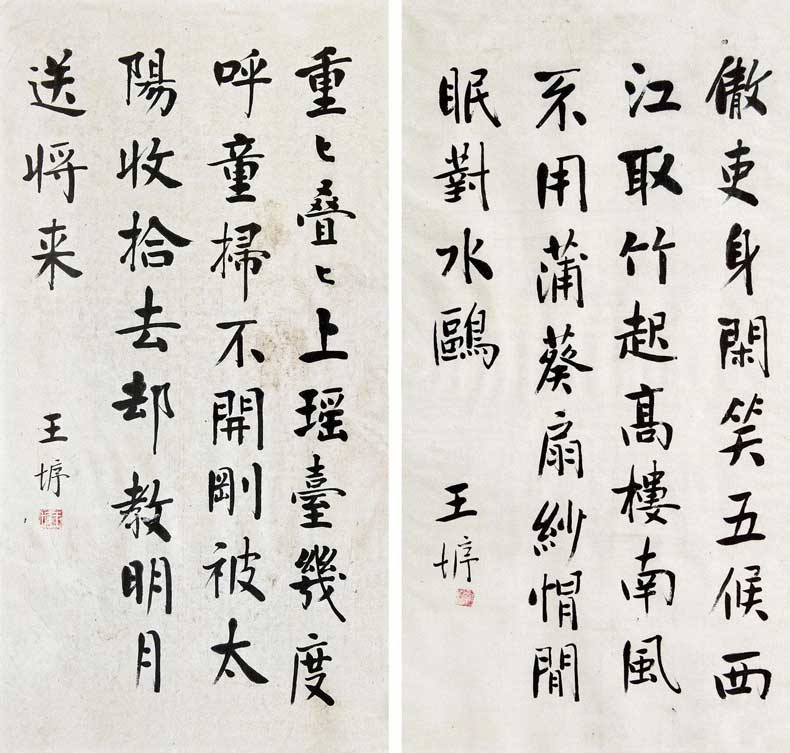 傲吏身閑笑五候西
江取竹起高樓南風
不用蒲葵扇紗帽閒
眠對水鷗
王垿
重々叠々上瑶臺幾度
呼童掃不開剛被太
陽收拾去却教明月
送将来
王垿